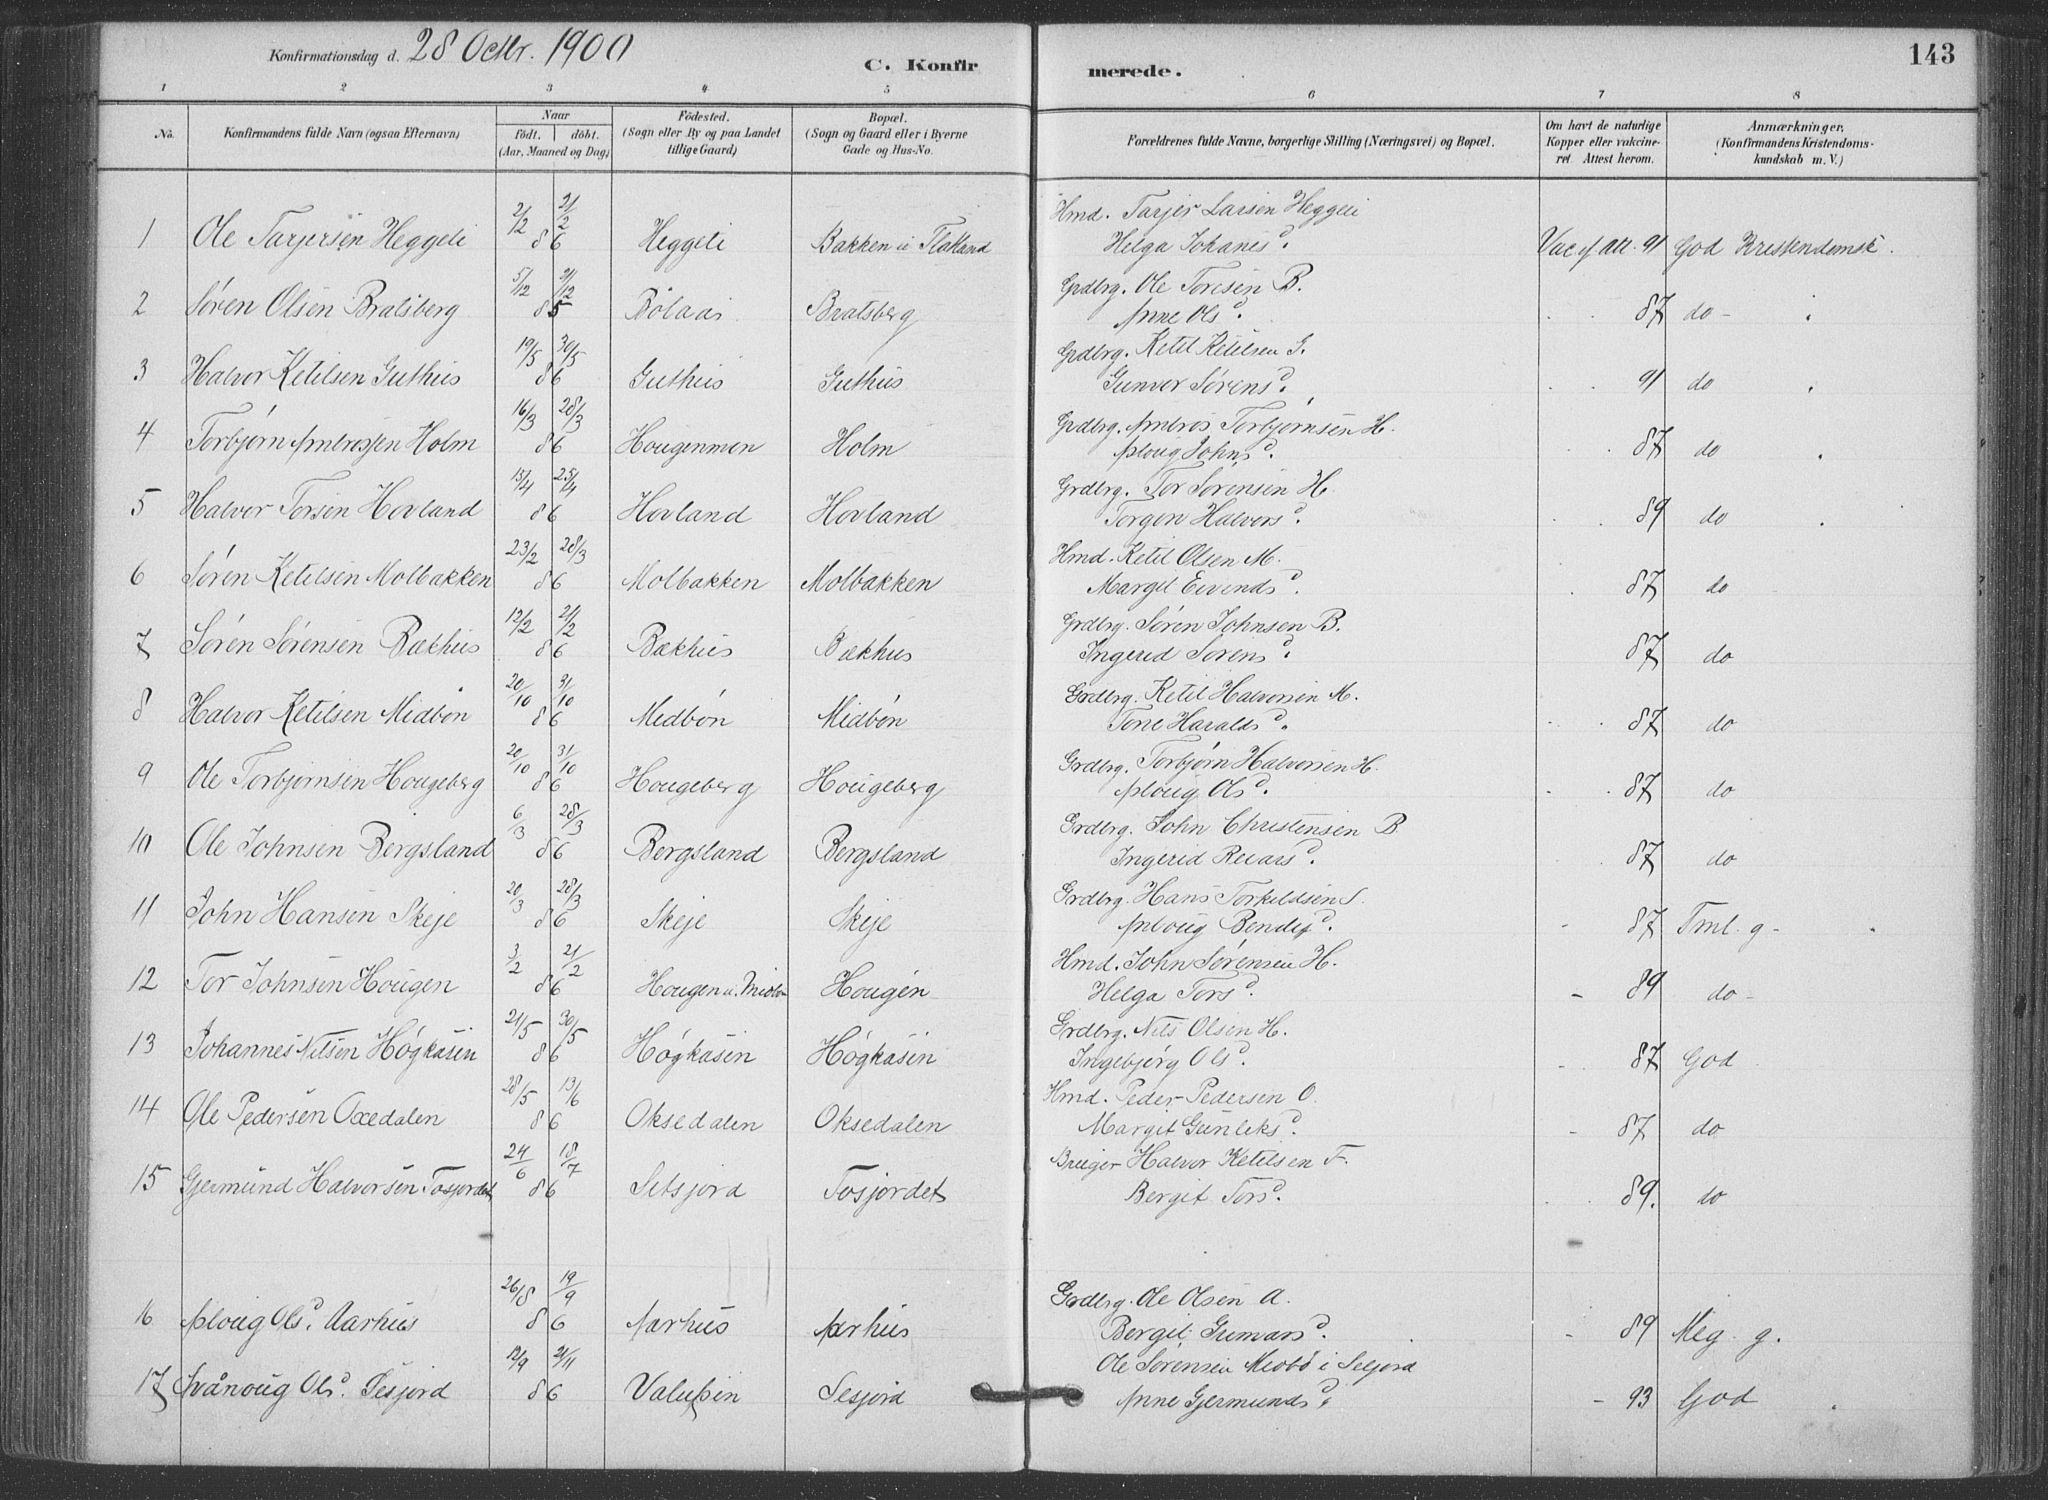 Konfirmationsdag d. 28 Octbr. 1900
C. Konfirmerede.
143
1 2 3 4 5 6 7 8
No.
Konfirmandens fulde Navn (ogsaa Efternavn)
Naar
födt. döbt.
(Aar, Maaned og Dag)
Födested.
(Sogn eller By og paa Landet
tillige Gaard)
Bopæl.
(Sogn og Gaard eller i Byerne
Gade og Hus-No.
Forældrenes fulde Navne, borgerlige Stilling (Næringsvei) og Bopæl.
Om havt de naturlige
Kopper eller vakcine-
ret Attest herom.
Anmærkninger.
(Konfirmandens Kristendoms-
kundskab m. V.)
1 Ole Tarjersen Heggeli 2/2 21/2 86 Heggeli Bakken u Flatland Hmd. Tarjer Larsen Heggeli
Helga Johanisd. Vac. att. 91 God Kristendomsk.
2 Søren Olsen Bratsberg 5/12 21/12 85 Bølaas Bratsberg Grdbrg. Ole Toresen B.
Anne Olsd. 87 do
3 Halvor Ketilsen Guthus 19/5 30/5 86 Guthus Guthus Grdbrg. Ketil Ketilsen G.
Gunver Sørensd. 91 do
4 Torbjørn Ambrossen Holm 16/3 28/3 86 Hougenmon Holm Grdbrg. Ambros Torbjørnsen H.
Aploug Johnsd. 87 do
5 Halvor Torsen Hovland 15/4 25/4 86 Hovland Hovland Grdbrg. Tor Sørensen H.
Torgon Halvorsd. 89 do
6 Søren Ketilsen Molbakken 23/2 28/3 86 Molbakken Molbakken Hmd. Ketil Olsen M.
Margit Eivendsd. 87 do
7 Søren Sørensen Bakhus 12/2 21/2 86 Bakhus Bakhus Grdbrg. Søren Johnsen B.
Ingerid Sorensd. 87 do
8 Halvor Ketilsen Midbøn 20/10 31/10 86 Midbøn Midbøn Grdbrg. Ketil Halvorsen M.
Tone Haraldsd. 87 do
9 Ole Torbjørnsen Hougeberg 20/10 31/10 86 Hougeberg Hougeberg Grdbrg. Torbjørn Halvorsen H.
Aploug Olsd. 87 do
10 Ole Johnsen Bergsland 6/3 28/3 86 Bergsland Bergsland Grdbrg. John Christensen B
Ingerid Reiarsd. 87 do
11 John Hansen Skeje 20/3 28/3 86 Skeje Skeje Grdbrg. Hans Torkildsen S.
Aploug Bendixd. 87 Tml. g
12 Tor Johnsen Hougen 3/2 21/2 86 Hougen u. Midbø Hougen Hmd. John Sørensen H.
Helga Torsd. 89 do
13 Johannes Nilsen Høgkasin 21/5 30/5 86 Høgkasin Høgkasin Grdbrg. Nils Olsen H.
Ingebjørg Olsd. 87 God
14 Ole Pedersen Oxedalen 28/5 13/6 86 Oksedalen Oksedalen Hmd. Peder Pedersen O.
Margit Gunleksd. 87 do
15 Gjermund Halvorsen Tosjordet 24/6 18/7 86 Selsjord Tosjordet Bruger Halvor Ketilsen T.
Bergit Torsd. 89. do
16 Aploug Olsd. Aarhus 26/8 19/9 86 Aarhus Aarhus Grdbrg. Ole Olsen A.
Bergit Gunarsd. 89 Meg. g.
17 Avånoug Olsd. Sesjord 12/9 21/11 86 Sesjord Ole Sørensen Midbø i Seljord
Anne Gjermundsd. 93 God